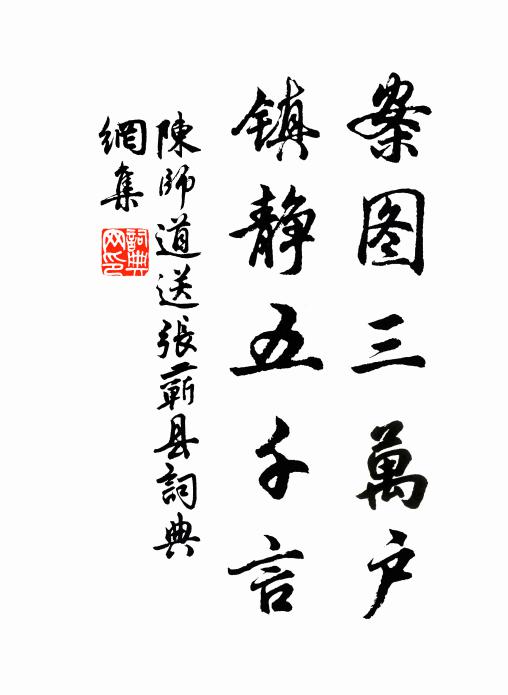 案图三萬户
镇静五千言
陳師道送張蘄县詞典
網集
詞典
网印